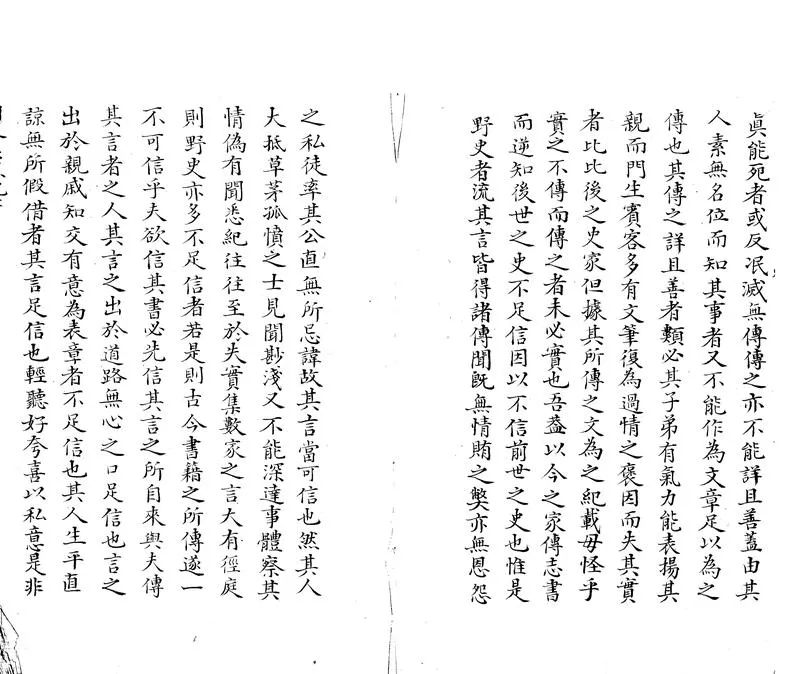 眞能死者或反泯滅無傳傳之亦不能詳且善蓋由其
人素無名位而知其事者又不能作為文章足以為之
傳也其傳之詳且善者類必其子弟有氣力能表揚其
親而門生賓客多有文筆復為過情之褒因而失其實
者比比後之史家但據其所傳之文為之紀載毋怪乎
實之不傳而傳之者未必實也吾蓋以今之家傳志書
而逆知後世之史不足信因以不信前世之史也惟是
野史者流其言皆得諸傳聞既無情賄之弊亦無恩怨
之私徒率其公直無所忌諱故其言當可信也然其人
大抵草茅孤憤之士見聞尠淺又不能深達事體察其
情偽有聞悉紀往往至於失實集數家之言大有徑庭
則野史亦多不足信者若是則古今書籍之所傳遂一
不可信乎夫欲信其書必先信其言之所自來與夫傳
其言者之人其言之出於道路無心之口足信也言之
出於親戚知交有意為表章者不足信也其人生平直
諒無所假借者其言足信也輕聽好夸喜以私意是非